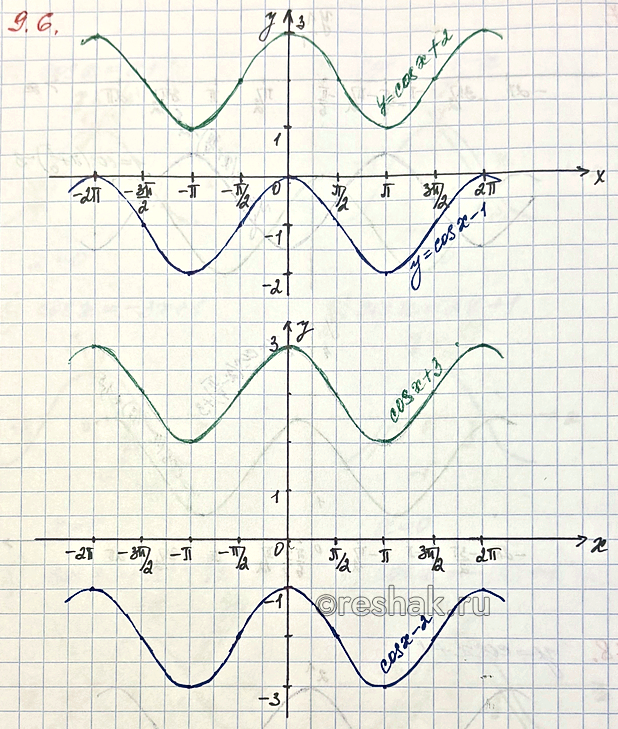 9.6.
y 3
y=cos x+2
1
x
-2π -3π/2 -π -π/2 0 π/2 π 3π/2 2π
-1
y=cos x-1
-2
y
3
cos x+3
1
-2π -3π/2 -π -π/2 0 π/2 π 3π/2 2π x
-1
©reshak.ru
cos x-2
-3